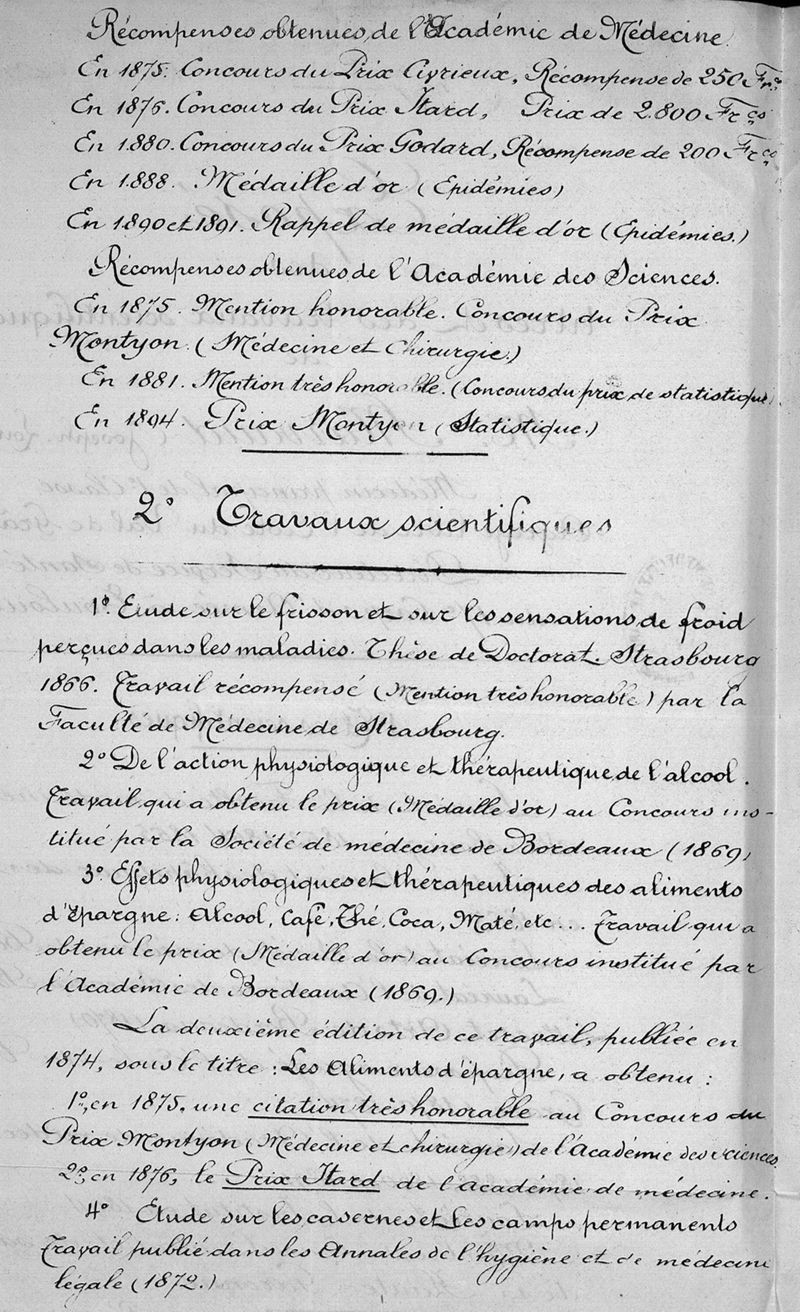 Récompenses obtenues de l'Académie de Médecine.
En 1875. Concours du Prix Civrieux, Récompense de 250 Frcs
En 1876. Concours du Prix Itard, Prix de 2.800 Frcs
En 1.880. Concours du Prix Godard, Récompense de 200 Frcs
En 1.888. Médaille d'or (Epidémies)
En 1.890 et 1891. Rappel de médaille d'or (Epidémies.)
Récompenses obtenues de l'Académie des Sciences.
En 1875. Mention honorable. Concours du Prix
Montyon. (Médecine et Chirurgie.)
En 1881. Mention très honorable. (Concours du prix de statistique)
En 1894. Prix Montyon (Statistique.)
2° Travaux scientifiques
1° Etude sur le frisson et sur les sensations de froid
perçues dans les maladies. Thèse de Doctorat. Strasbourg
1866. Travail récompensé (Mention très honorable) par la
Faculté de Médecine de Strasbourg.
2° De l'action physiologique et thérapeutique de l'alcool.
Travail qui a obtenu le prix (Médaille d'or) au Concours ins-
titué par la Société de médecine de Bordeaux (1869)
3° Effets physiologiques et thérapeutiques des aliments
d'épargne: Alcool, Café, Thé, Coca, Maté, etc... Travail qui a
obtenu le prix (Médaille d'or) au Concours institué par
l'Académie de Bordeaux (1869.)
La deuxième édition de ce travail, publiée en
1874, sous le titre: Les Aliments d'épargne, a obtenu:
1°, en 1875, une citation très honorable au Concours du
Prix Montyon (Médecine et chirurgie) de l'Académie des sciences.
2°, en 1876, le Prix Itard de l'académie de médecine.
4° Etude sur les casernes et les camps permanents
Travail publié dans les Annales de l'hygiène et de médecine
légale (1872.)